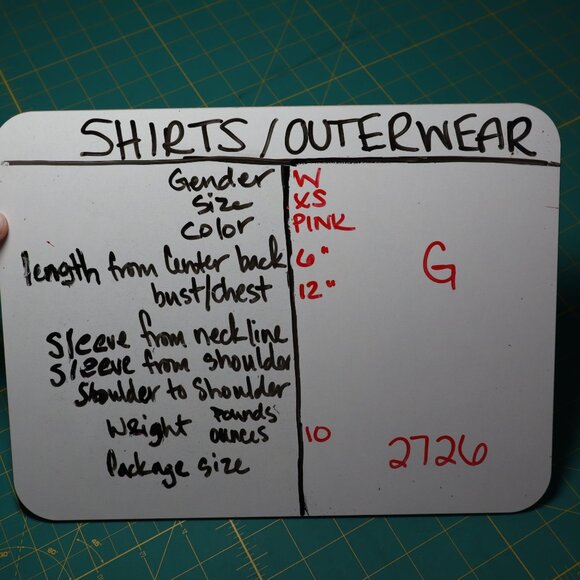 SHIRTS/OUTERWEAR
Gender W
size XS
color PINK
length from Center back 6"
G
bust/chest 12"
Sleeve from neckline
Sleeve from shoulder
Shoulder to Shoulder
Weight Pounds
ounces 10
Package size
2726